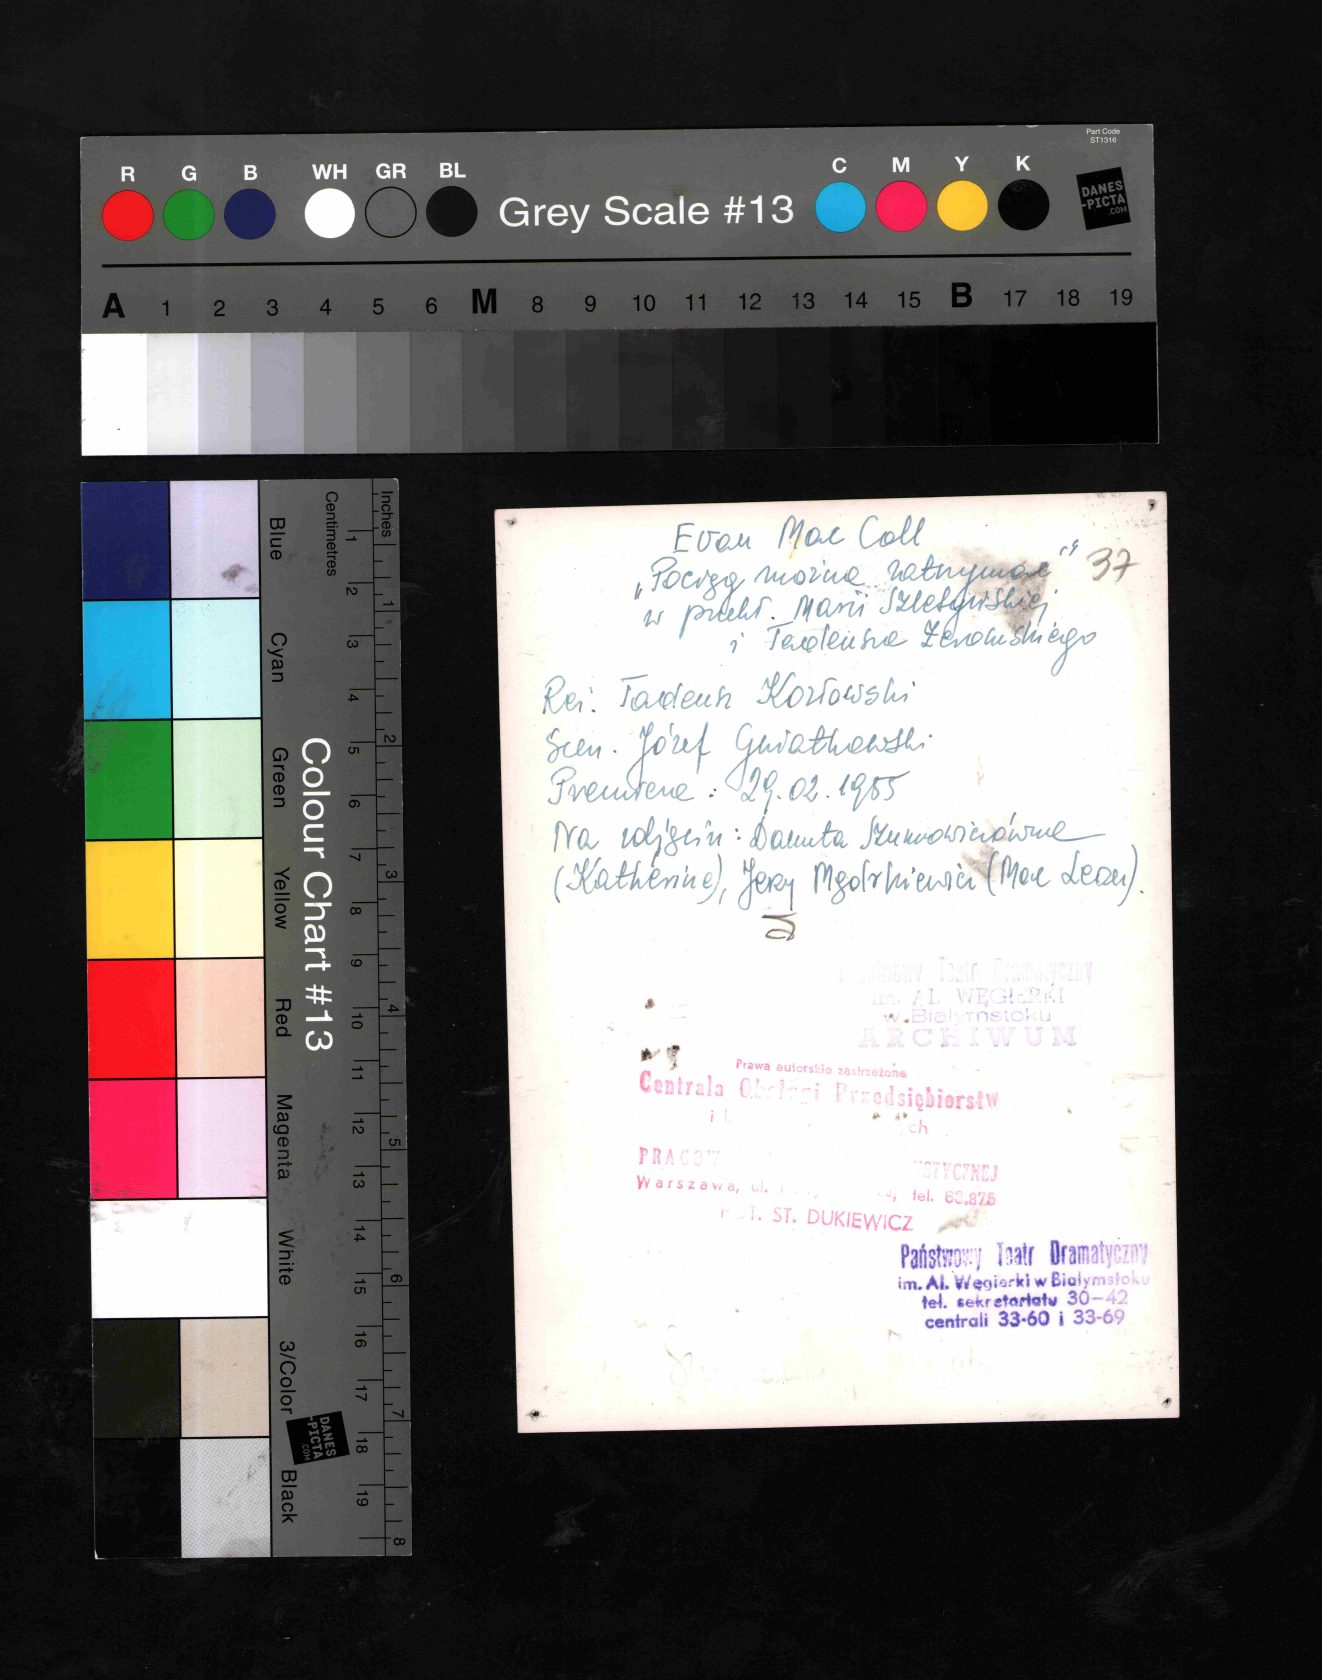 Part Code
ST1316
R G B WH GR BL Grey Scale #13 C M Y K
DANES
-PICTA
.COM
A 1 2 3 4 5 6 M 8 9 10 11 12 13 14 15 B 17 18 19
Colour Chart #13
Blue Cyan Green Yellow Red Magenta White 3/Color Black
Centimetres 1 2 3 4 5 6 7 8 9 10 11 12 13 14 15 16 17 18 19
Inches 1 2 3 4 5 6 7 8
DANES
-PICTA
.COM
Evan Mac Coll
„Pociąg można zatrzymać" 37
w przekł. Marii
i Tadeusza Żeromskiego
Reż. Tadeusz Kozłowski
Scen. Józef Gwiatkowski
Premiera: 29.02.1955
Na zdjęciu: Danuta Szumowiczówna
(Katherine), Jerzy (Mac Lean).
Państwowy Teatr Dramatyczny
im. Al. WĘGIERKI
w Białymstoku
ARCHIWUM
Prawa autorskie zastrzeżone
Centrala Obsługi Przedsiębiorstw
i
Warszawa, ul. tel.
FOT. ST. DUKIEWICZ
Państwowy Teatr Dramatyczny
im. Al. Węgierki w Białymstoku
tel. sekretariatu 30-42
centrali 33-60 i 33-69